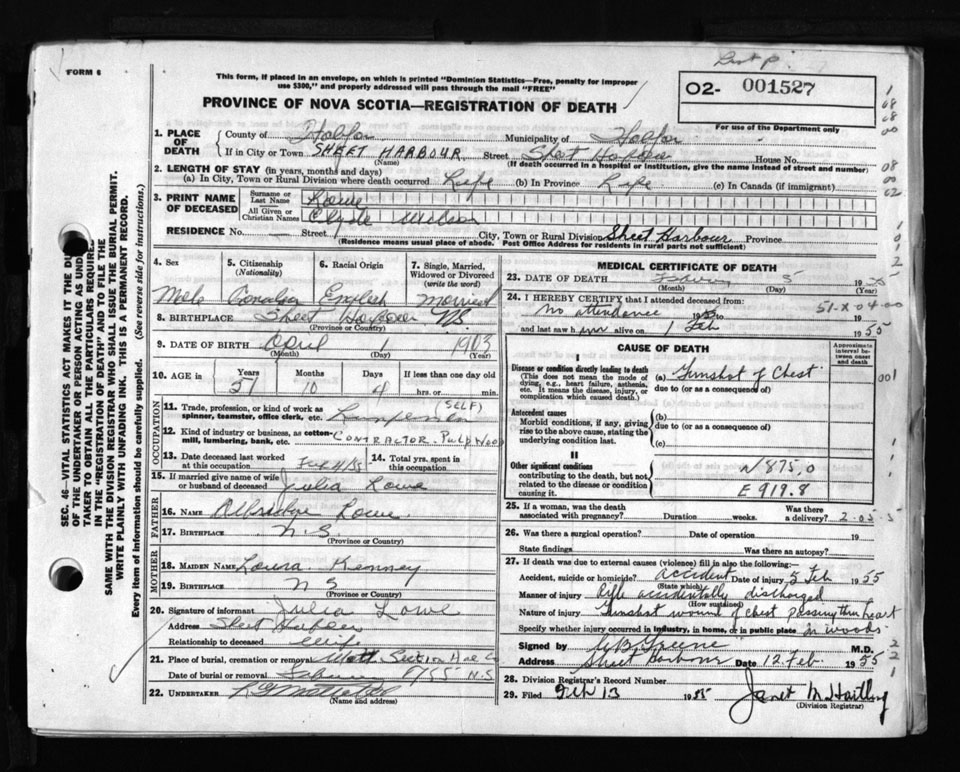 FORM 6
This form, if placed in an envelope, on which is printed "Dominion Statistics—Free, penalty for improper
use $300," and properly addressed will pass through the mail "FREE"
PROVINCE OF NOVA SCOTIA—REGISTRATION OF DEATH
O2- 001527
For use of the Department only
SEC. 46—VITAL STATISTICS ACT MAKES IT THE DU
OF THE UNDERTAKER OR PERSON ACTING AS UND
TAKER TO OBTAIN ALL THE PARTICULARS REQUIRED
IN THE "REGISTRATION OF DEATH" AND TO FILE THE
SAME WITH THE DIVISION REGISTRAR WHO SHALL ISSUE THE BURIAL PERMIT.
WRITE PLAINLY WITH UNFADING INK. THIS IS A PERMANENT RECORD.
Every item of information should be carefully supplied. (See reverse side for instructions.)
1. PLACE OF DEATH County of Halifax Municipality of Halifax
If in City or Town SHEET HARBOUR Street Sheet Harbour House No.
(Name) (If death occurred in a hospital or institution, give the name instead of street and number)
2. LENGTH OF STAY (in years, months and days)
(a) In City, Town or Rural Division where death occurred Life (b) In Province Life (c) In Canada (if immigrant)
3. PRINT NAME OF DECEASED Surname or Last Name Lowe
All Given or Christian Names Clyde
RESIDENCE No. — Street City, Town or Rural Division Sheet Harbour Province
(Residence means usual place of abode. Post Office Address for residents in rural parts not sufficient)
4. Sex 5. Citizenship (Nationality) 6. Racial Origin 7. Single, Married, Widowed or Divorced (write the word)
Male Canadian English Married
8. BIRTHPLACE Sheet Harbour N.S.
(Province or Country)
9. DATE OF BIRTH April 1 1903
(Month) (Day) (Year)
10. AGE in Years Months Days If less than one day
51 10 4 hrs. or min.
OCCUPATION
11. Trade, profession, or kind of work as spinner, teamster, office clerk, etc. Lumberman (SELF)
12. Kind of industry or business, as cotton-mill, lumbering, bank, etc. CONTRACTOR. PULP WOOD
13. Date deceased last worked at this occupation Feb 4/55 14. Total yrs. spent in this occupation
15. If married give name of wife or husband of deceased Julia Lowe
FATHER
16. Name Lowe
17. BIRTHPLACE N.S.
(Province or Country)
MOTHER
18. MAIDEN NAME Laura Kenney
19. BIRTHPLACE N S
(Province or Country)
20. Signature of informant Julia Lowe
Address Sheet Harbour
Relationship to deceased Wife
21. Place of burial, cremation or removal
Date of burial or removal 1955 N.S
22. UNDERTAKER
(Name and address)
MEDICAL CERTIFICATE OF DEATH
23. DATE OF DEATH February 5 19
(Month) (Day)
24. I HEREBY CERTIFY that I attended deceased from:
no attendance 1955 to 19
and last saw him alive on 1 Feb 1955
CAUSE OF DEATH
Approximate interval between onset and death
I
Disease or condition directly leading to death (a) Gunshot of Chest
(This does not mean the mode of dying, e.g., heart failure, asthenia, etc. It means the disease, injury, or complication which caused death.)
due to (or as a consequence of)
Antecedent causes (b)
Morbid conditions, if any, giving rise to the above cause, stating the underlying condition last.
due to (or as a consequence of)
(c)
II
Other significant conditions
contributing to the death, but not related to the disease or condition causing it.
N/875.0
E 919.8
25. If a woman, was the death associated with pregnancy? Duration weeks. Was there a delivery?
26. Was there a surgical operation? Date of operation 19
State findings Was there an autopsy?
27. If death was due to external causes (violence) fill in also the following:
Accident, suicide or homicide? accident Date of injury 5 Feb 1955
(State which)
Manner of injury Rifle accidentally discharged
(How sustained)
Nature of injury Gunshot wound of chest passing thru heart
Specify whether injury occurred in industry, in home, or in public place in woods
Signed by Greene M.D.
Address Sheet Harbour Date 12 Feb. 1955
28. Division Registrar's Record Number
29. Filed Feb 13 1955 Janet M Hartling
(Division Registrar)